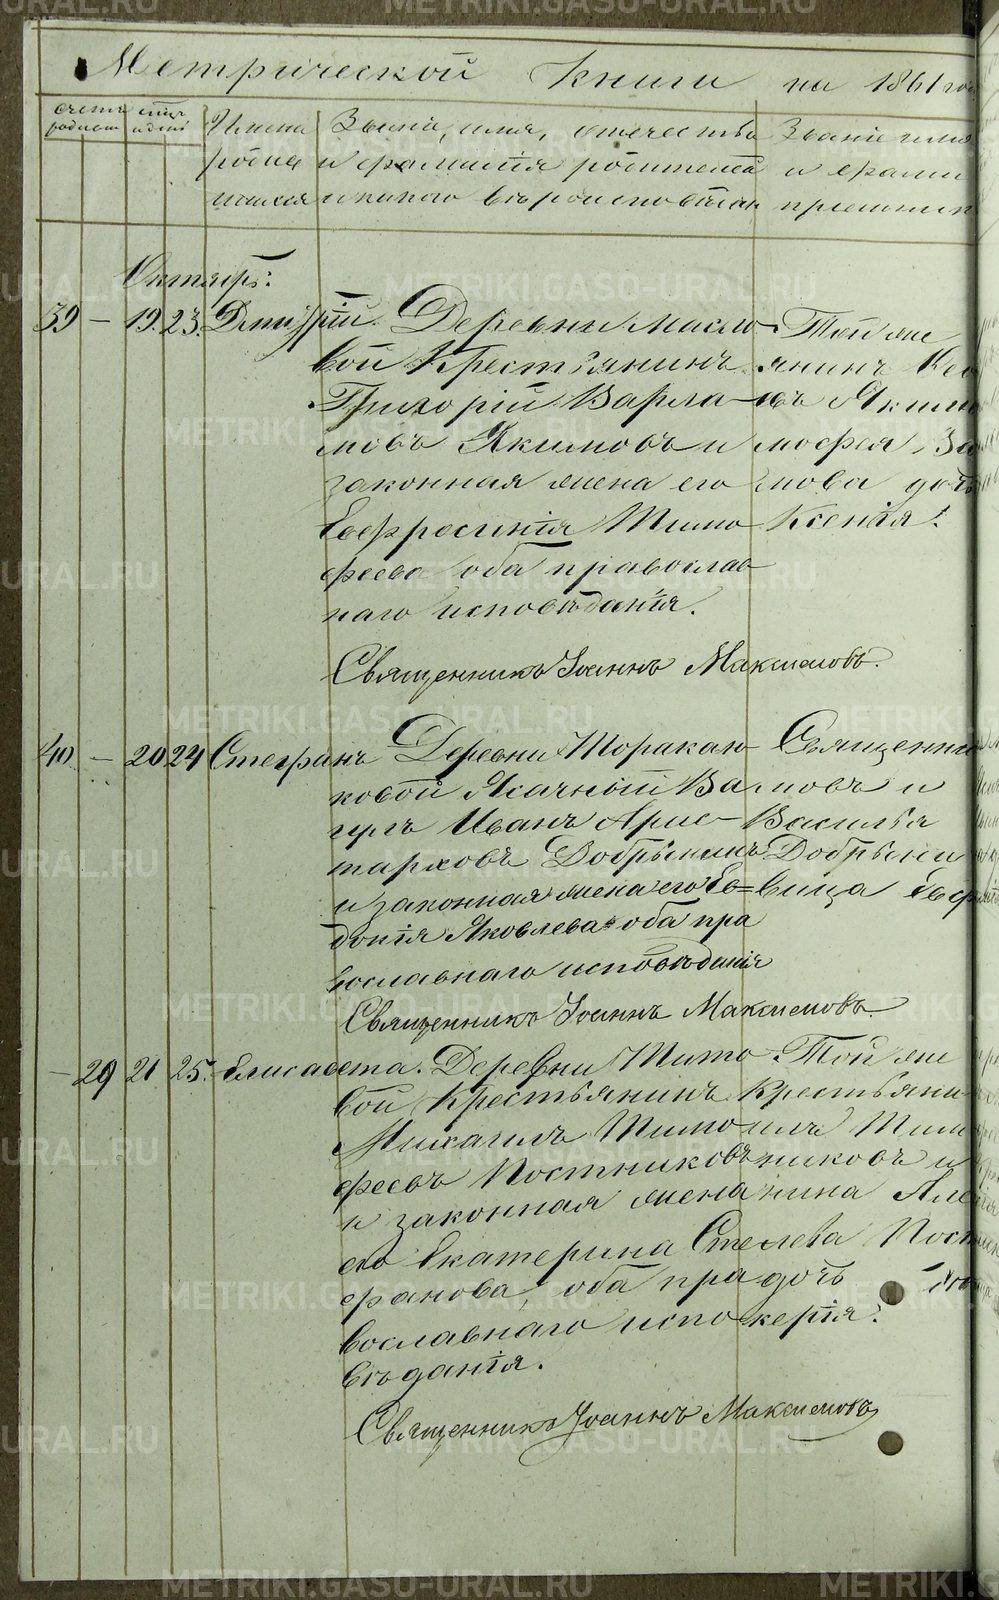 Метрической книги на 1861 го
счетъ родивш
мѣц. и дни
Имена
родив
шихся
Званіе, имя, отечество
и фамилія родителей
и какого вѣроисповѣдан
Званіе имя
и фами
пріемник
Октябрь:
39 — 19. 23. Дмитрій.
Деревни Масло
вой Крестьянинъ
Григорій Варла
мовъ Якимовъ и
законная жена его
Евфросинія Тимо
феева оба православ
наго исповѣданія.
Той же
янинъ
въ Яким
мофея, За
мова дочь
Ксенія.
Священникъ Іоаннъ Максимовъ.
40 — 20 24 Стефанъ
Деревни Торкако
ковой Ясачный Ва
гулъ Иванъ Арис
тарховъ Добрынинъ
и законная жена его Ев=
докія Яковлева оба пра
вославнаго исповѣданія
Священни
мовъ и
Васильа
Добрыни
вица Евф
Священникъ Іоаннъ Максимовъ.
— 29 21 25. Елисавета.
Деревни Тито
вой Крестьянинъ
Михаилъ Тимо
феевъ Постниковъ
и законная жена
его Екатерина Сте
фанова, оба пра
вославнаго испо
вѣданія.
Той же
Крестьяни
илъ Тим
никовъ и
нина Але
лева Пост
дочь
керія.
Священникъ Іоаннъ Максимовъ
METRIKI.GASO-URAL.RU